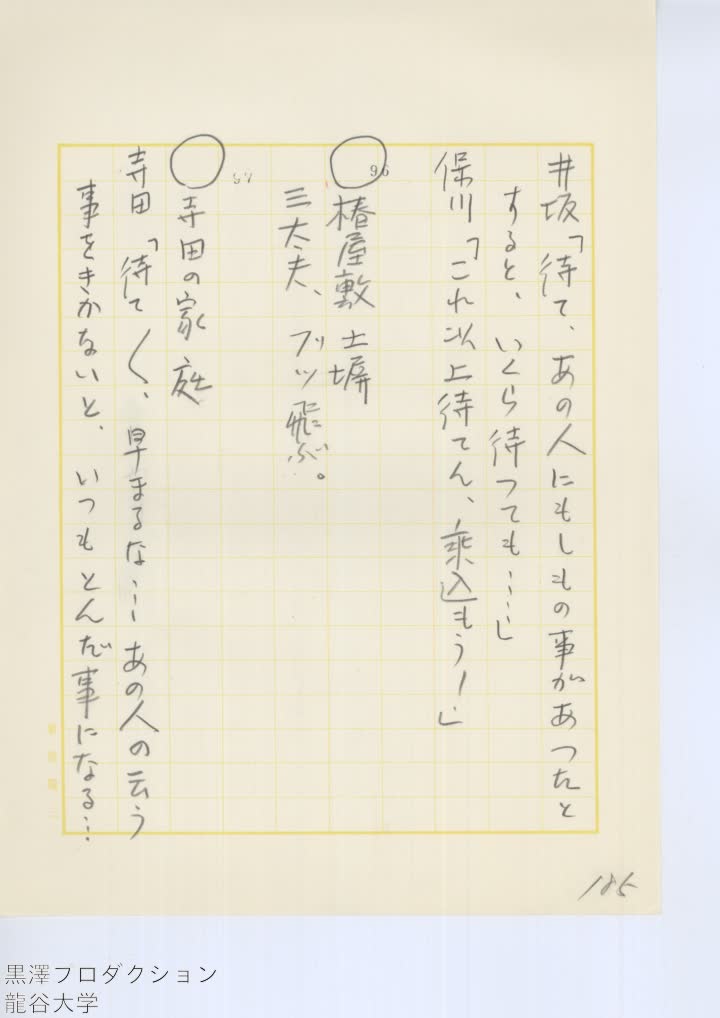 井坂「待て、あの人にもしもの事があつたと
すると、いくら待つても……」
保川「これ以上待てん、乗込もう！」
96
◯椿屋敷 土塀
三太夫、フツ飛ぶ。
97
◯寺田の家 庭
寺田「待て〱、早まるな…… あの人の云う
事をきかないと、いつもとんだ事になる……
185
黒澤プロダクション
龍谷大学